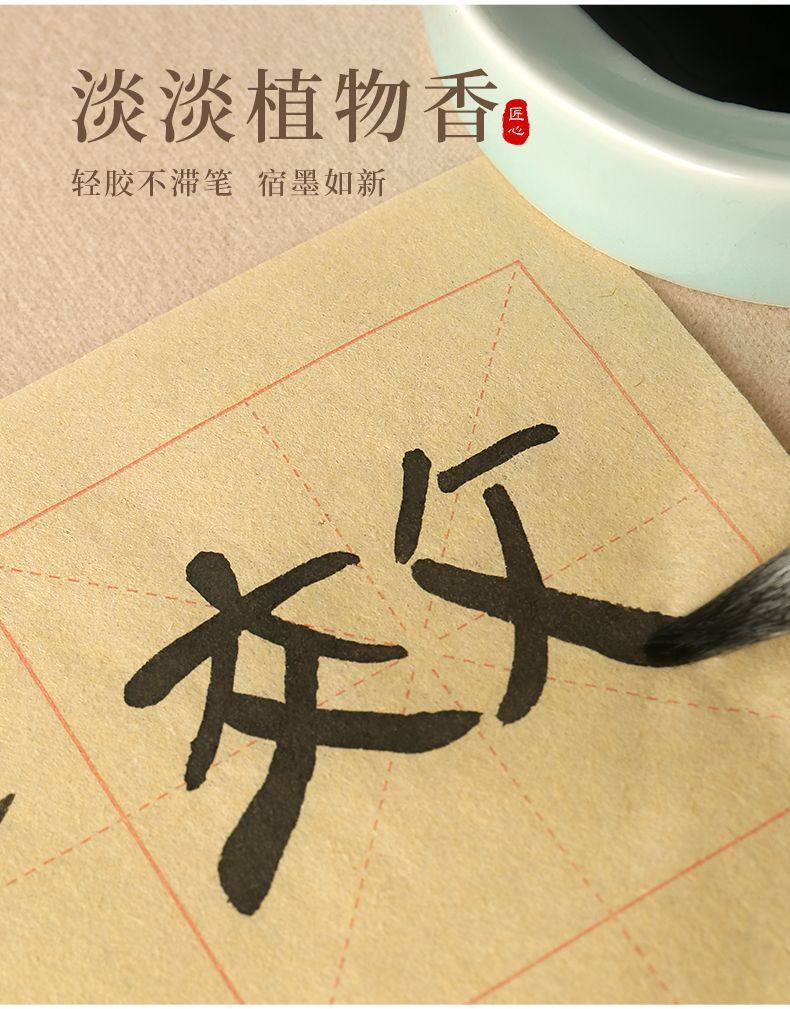 淡淡植物香
匠心
轻胶不滞笔 宿墨如新